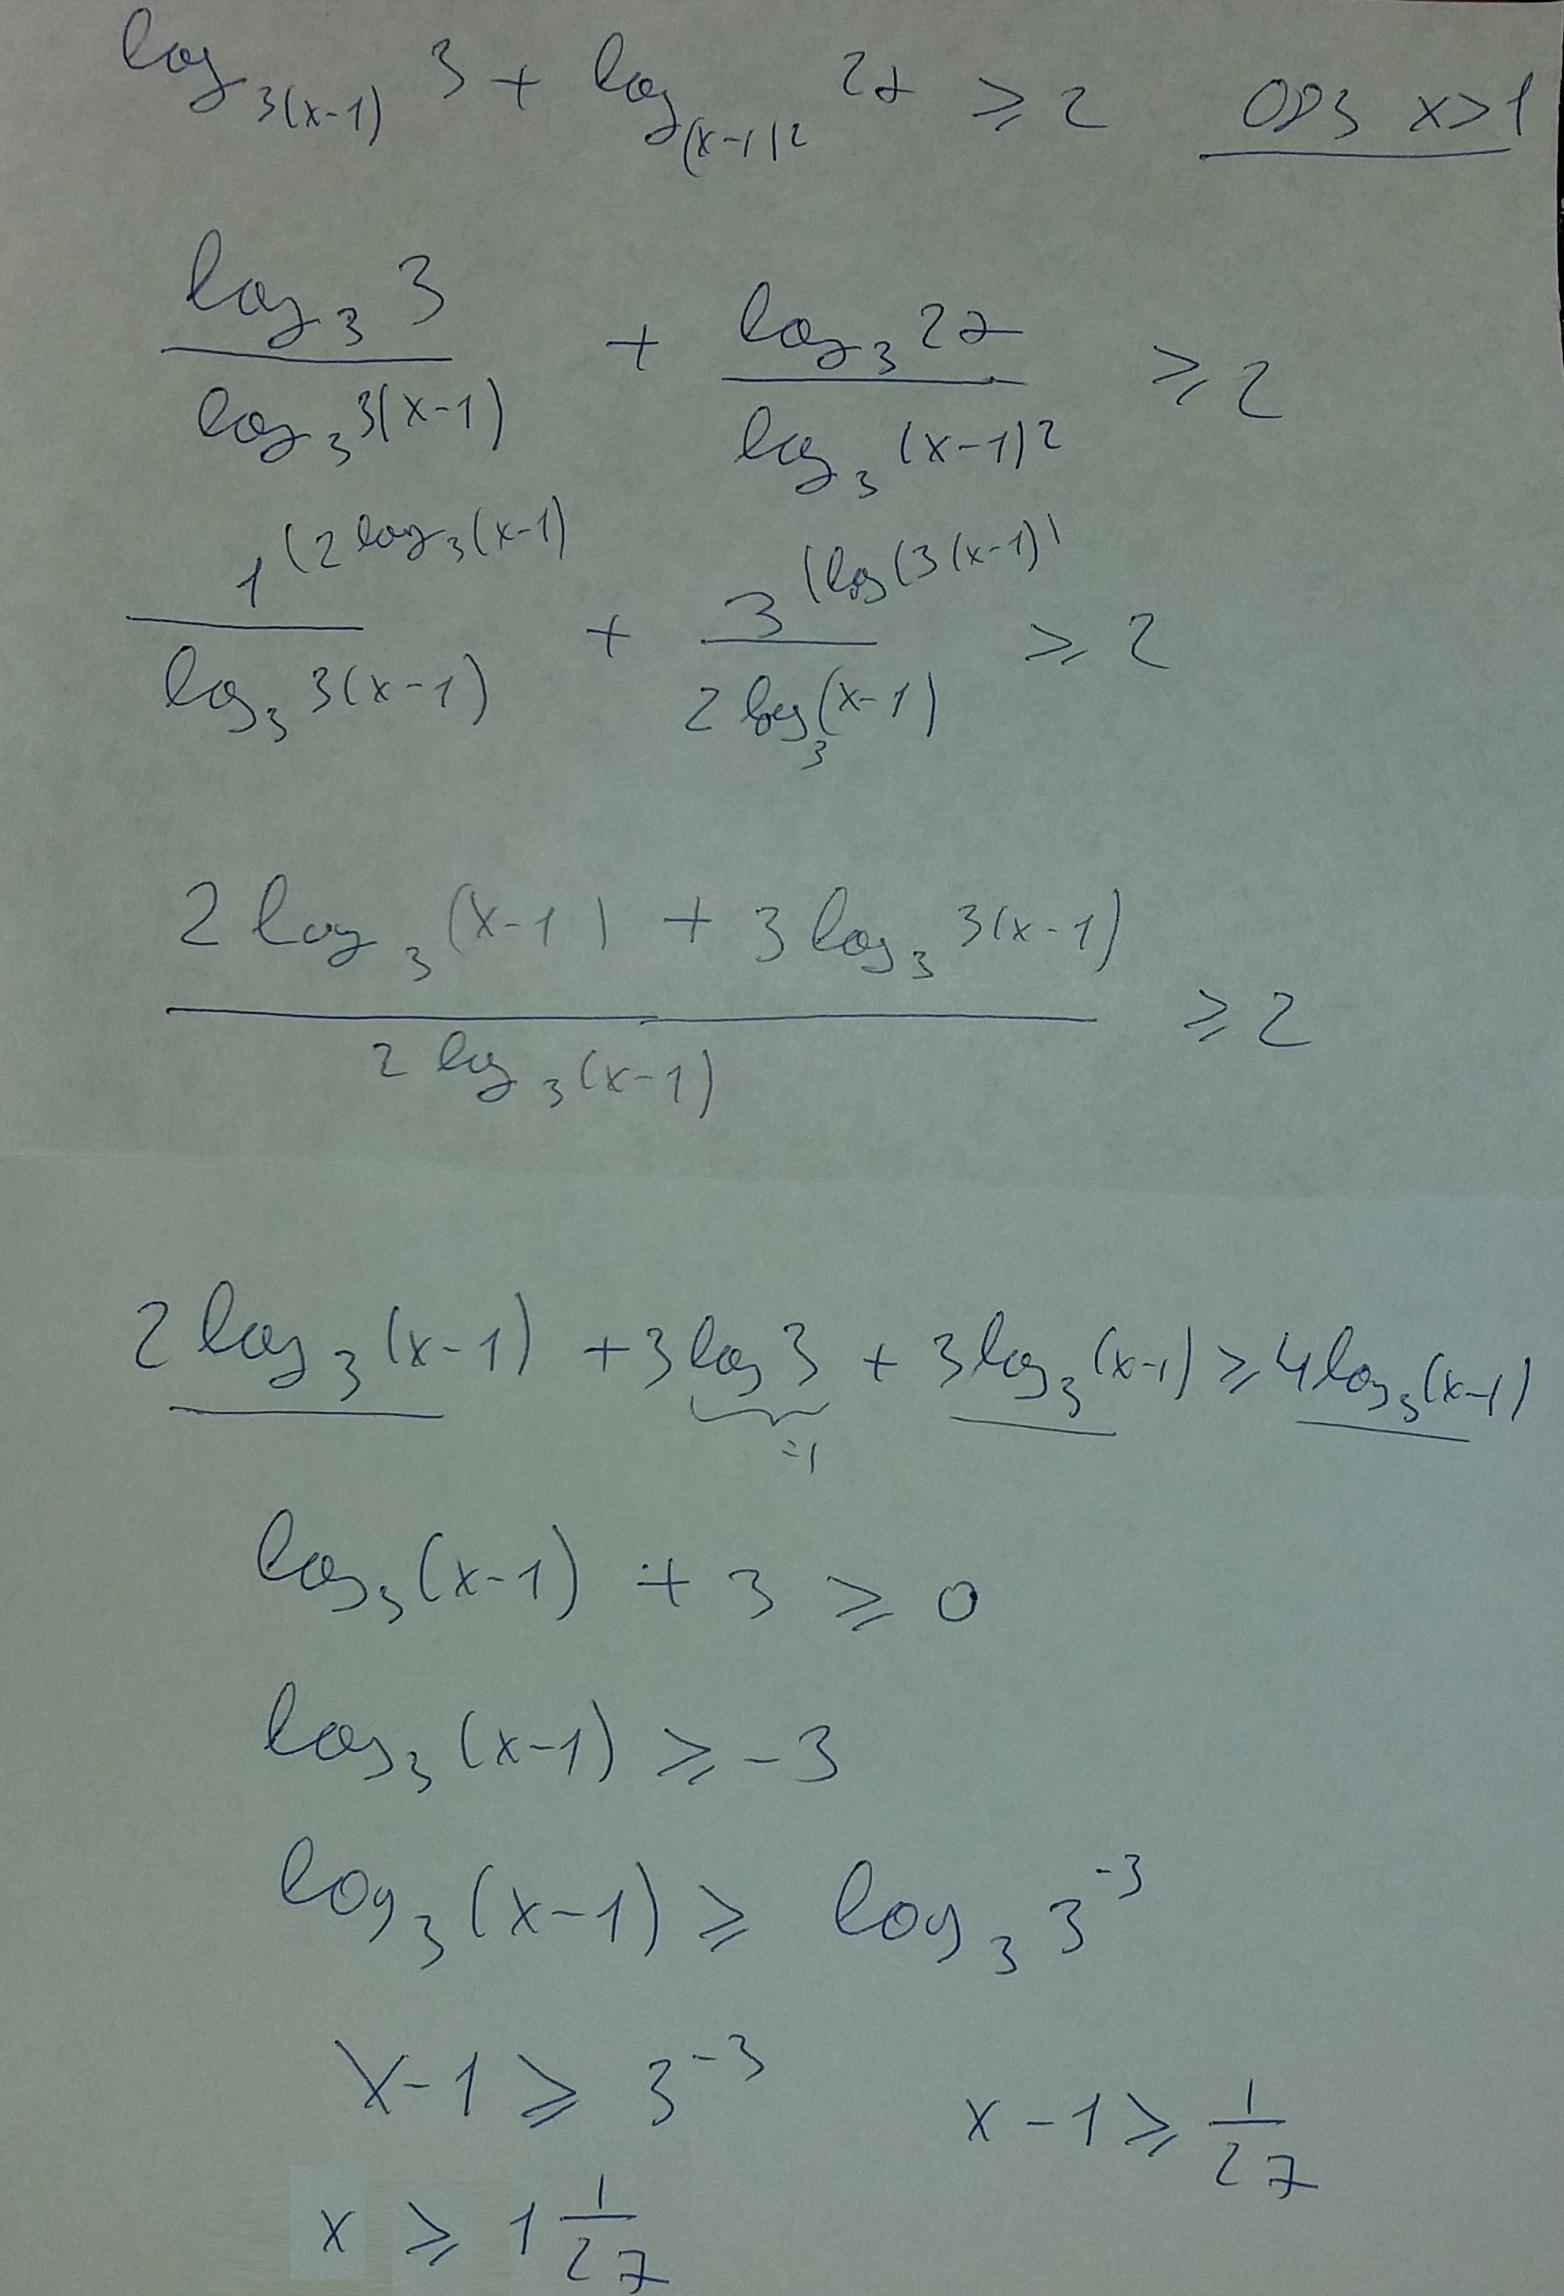 log₃₍ₓ₋₁₎ 3 + log₍ₓ₋₁₎² 27 ⩾ 2 ОДЗ x>1
log₃ 3 / log₃ 3(x-1) + log₃ 27 / log₃ (x-1)² ⩾ 2
1 (2 log₃(x-1) / log₃ 3(x-1) + 3 (log(3(x-1)) / 2 log₃(x-1) ⩾ 2
2 log₃ (x-1) + 3 log₃ 3(x-1) / 2 log₃(x-1) ⩾ 2
2 log₃ (x-1) + 3 log 3 + 3 log₃ (x-1) ⩾ 4 log₃(x-1)
=1
log₃(x-1) + 3 ⩾ 0
log₃ (x-1) ⩾ -3
log₃ (x-1) ⩾ log₃ 3⁻³
x-1 ⩾ 3⁻³ x-1 ⩾ 1/27
x ⩾ 1 1/27